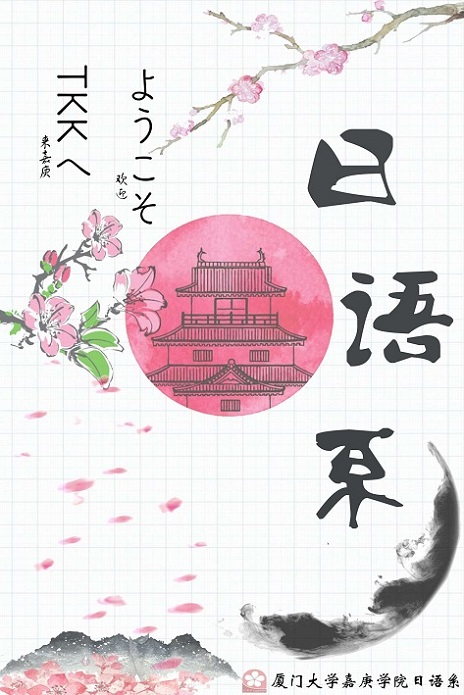 日语系
ようこそ
欢迎
TKKへ
来嘉庚
厦门大学嘉庚学院日语系